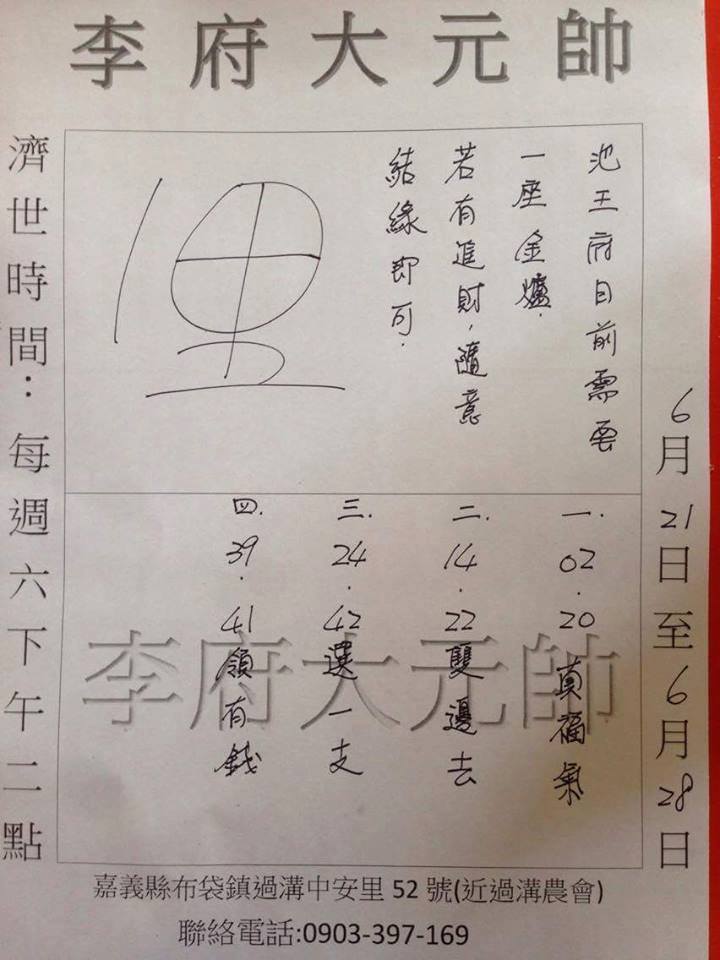 李府大元帥
6月21日至6月28日
池王府目前需要
一座金爐.
若有進財,隨意
結緣即可.
一. 02.20 真福氣
二. 14.22雙邊去
三. 24.42選一支
四. 39.41領有錢
李府大元帥
濟世時間:每週六下午二點
嘉義縣布袋鎮過溝中安里 52 號(近過溝農會)
聯絡電話:0903-397-169